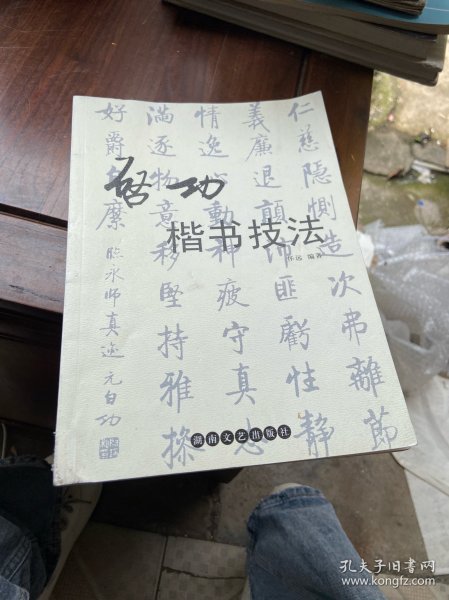 启功
楷书技法
编著
仁慈隱惻造次弗離節
義廉退顛沛匪虧性靜
情逸心動神疲守真志
滿逐物意移堅持雅操
好爵自縻 臨永師真迹 元白功
湖南文艺出版社
孔夫子旧书网
www.kongfz.com